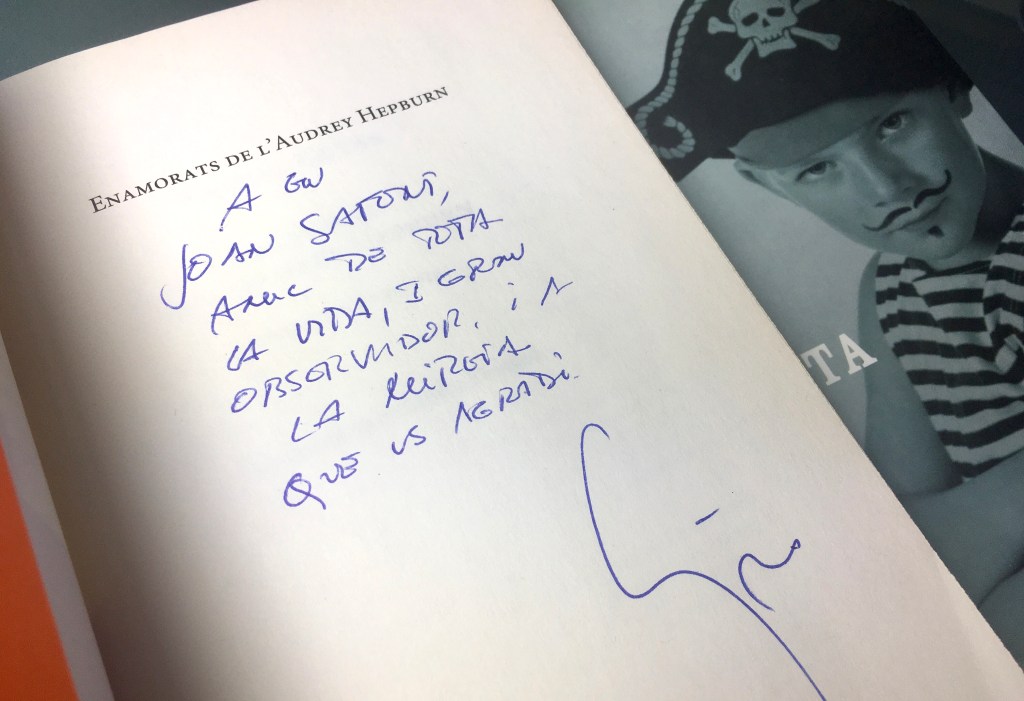 ENAMORATS DE L'AUDREY HEPBURN
A EN
JOAN SAFONT,
AMIC DE TOTA
LA VIDA, I GRAN
OBSERVADOR. i A
LA MIREIA
QUE US AGRADI.
TA